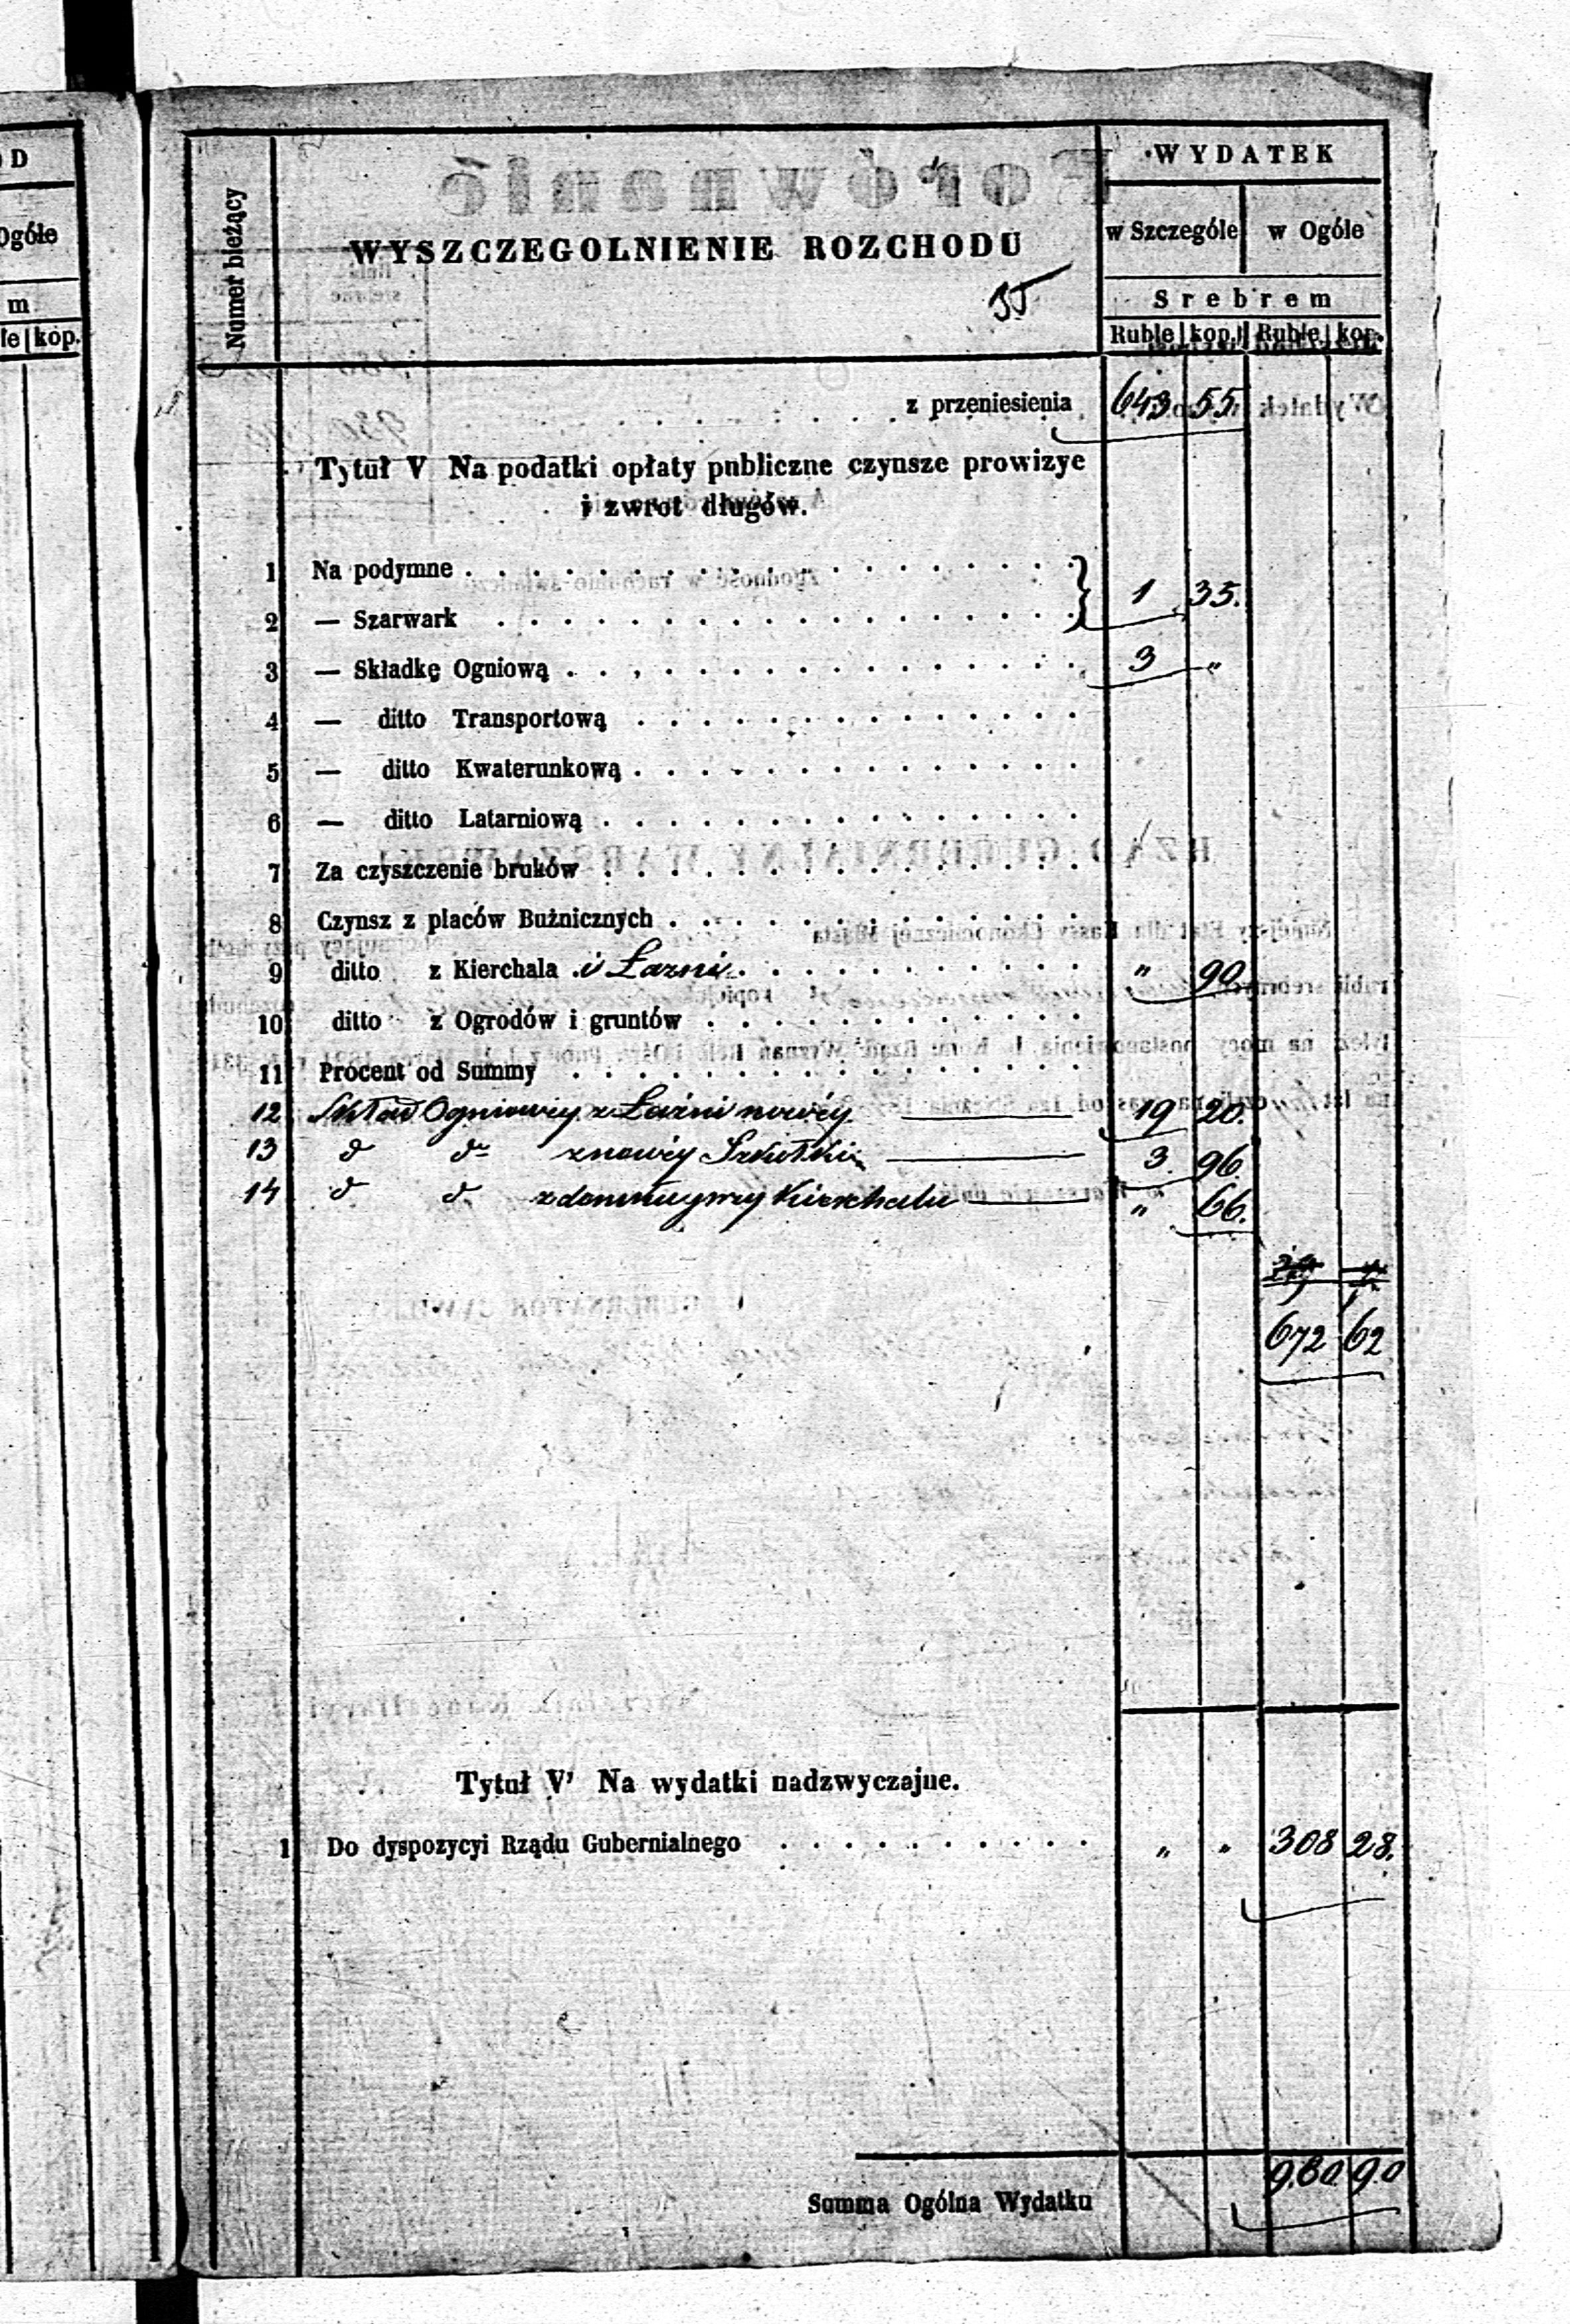 O D
Ogóle
m
le kop.
Numer bieżący
WYSZCZEGOLNIENIE ROZCHODU
WYDATEK
w Szczególe w Ogóle
Srebrem
Ruble kop. Ruble kop.
z przeniesienia 643 55.
Tytuł V Na podatki opłaty publiczne czynsze prowizye
i zwrot długów.
1 Na podymne
1 35.
2 — Szarwark
3 — Składkę Ogniową 3 "
4 — ditto Transportową
5 — ditto Kwaterunkową
6 — ditto Latarniową
7 Za czyszczenie bruków
8 Czynsz z placów Bużnicznych
9 ditto z Kierchala i Łazni " 90.
10 ditto z Ogrodów i gruntów
11 Procent od Summy
12 Ogniowey z Łaźni nowéy 19 20.
13 d d° z nowéy 3. 96
14 d d. Kierchalu " 66.
672 62
Tytuł V' Na wydatki nadzwyczajne.
1 Do dyspozycyi Rządu Gubernialnego " " 308 28.
Summa Ogólna Wydatku 980 90